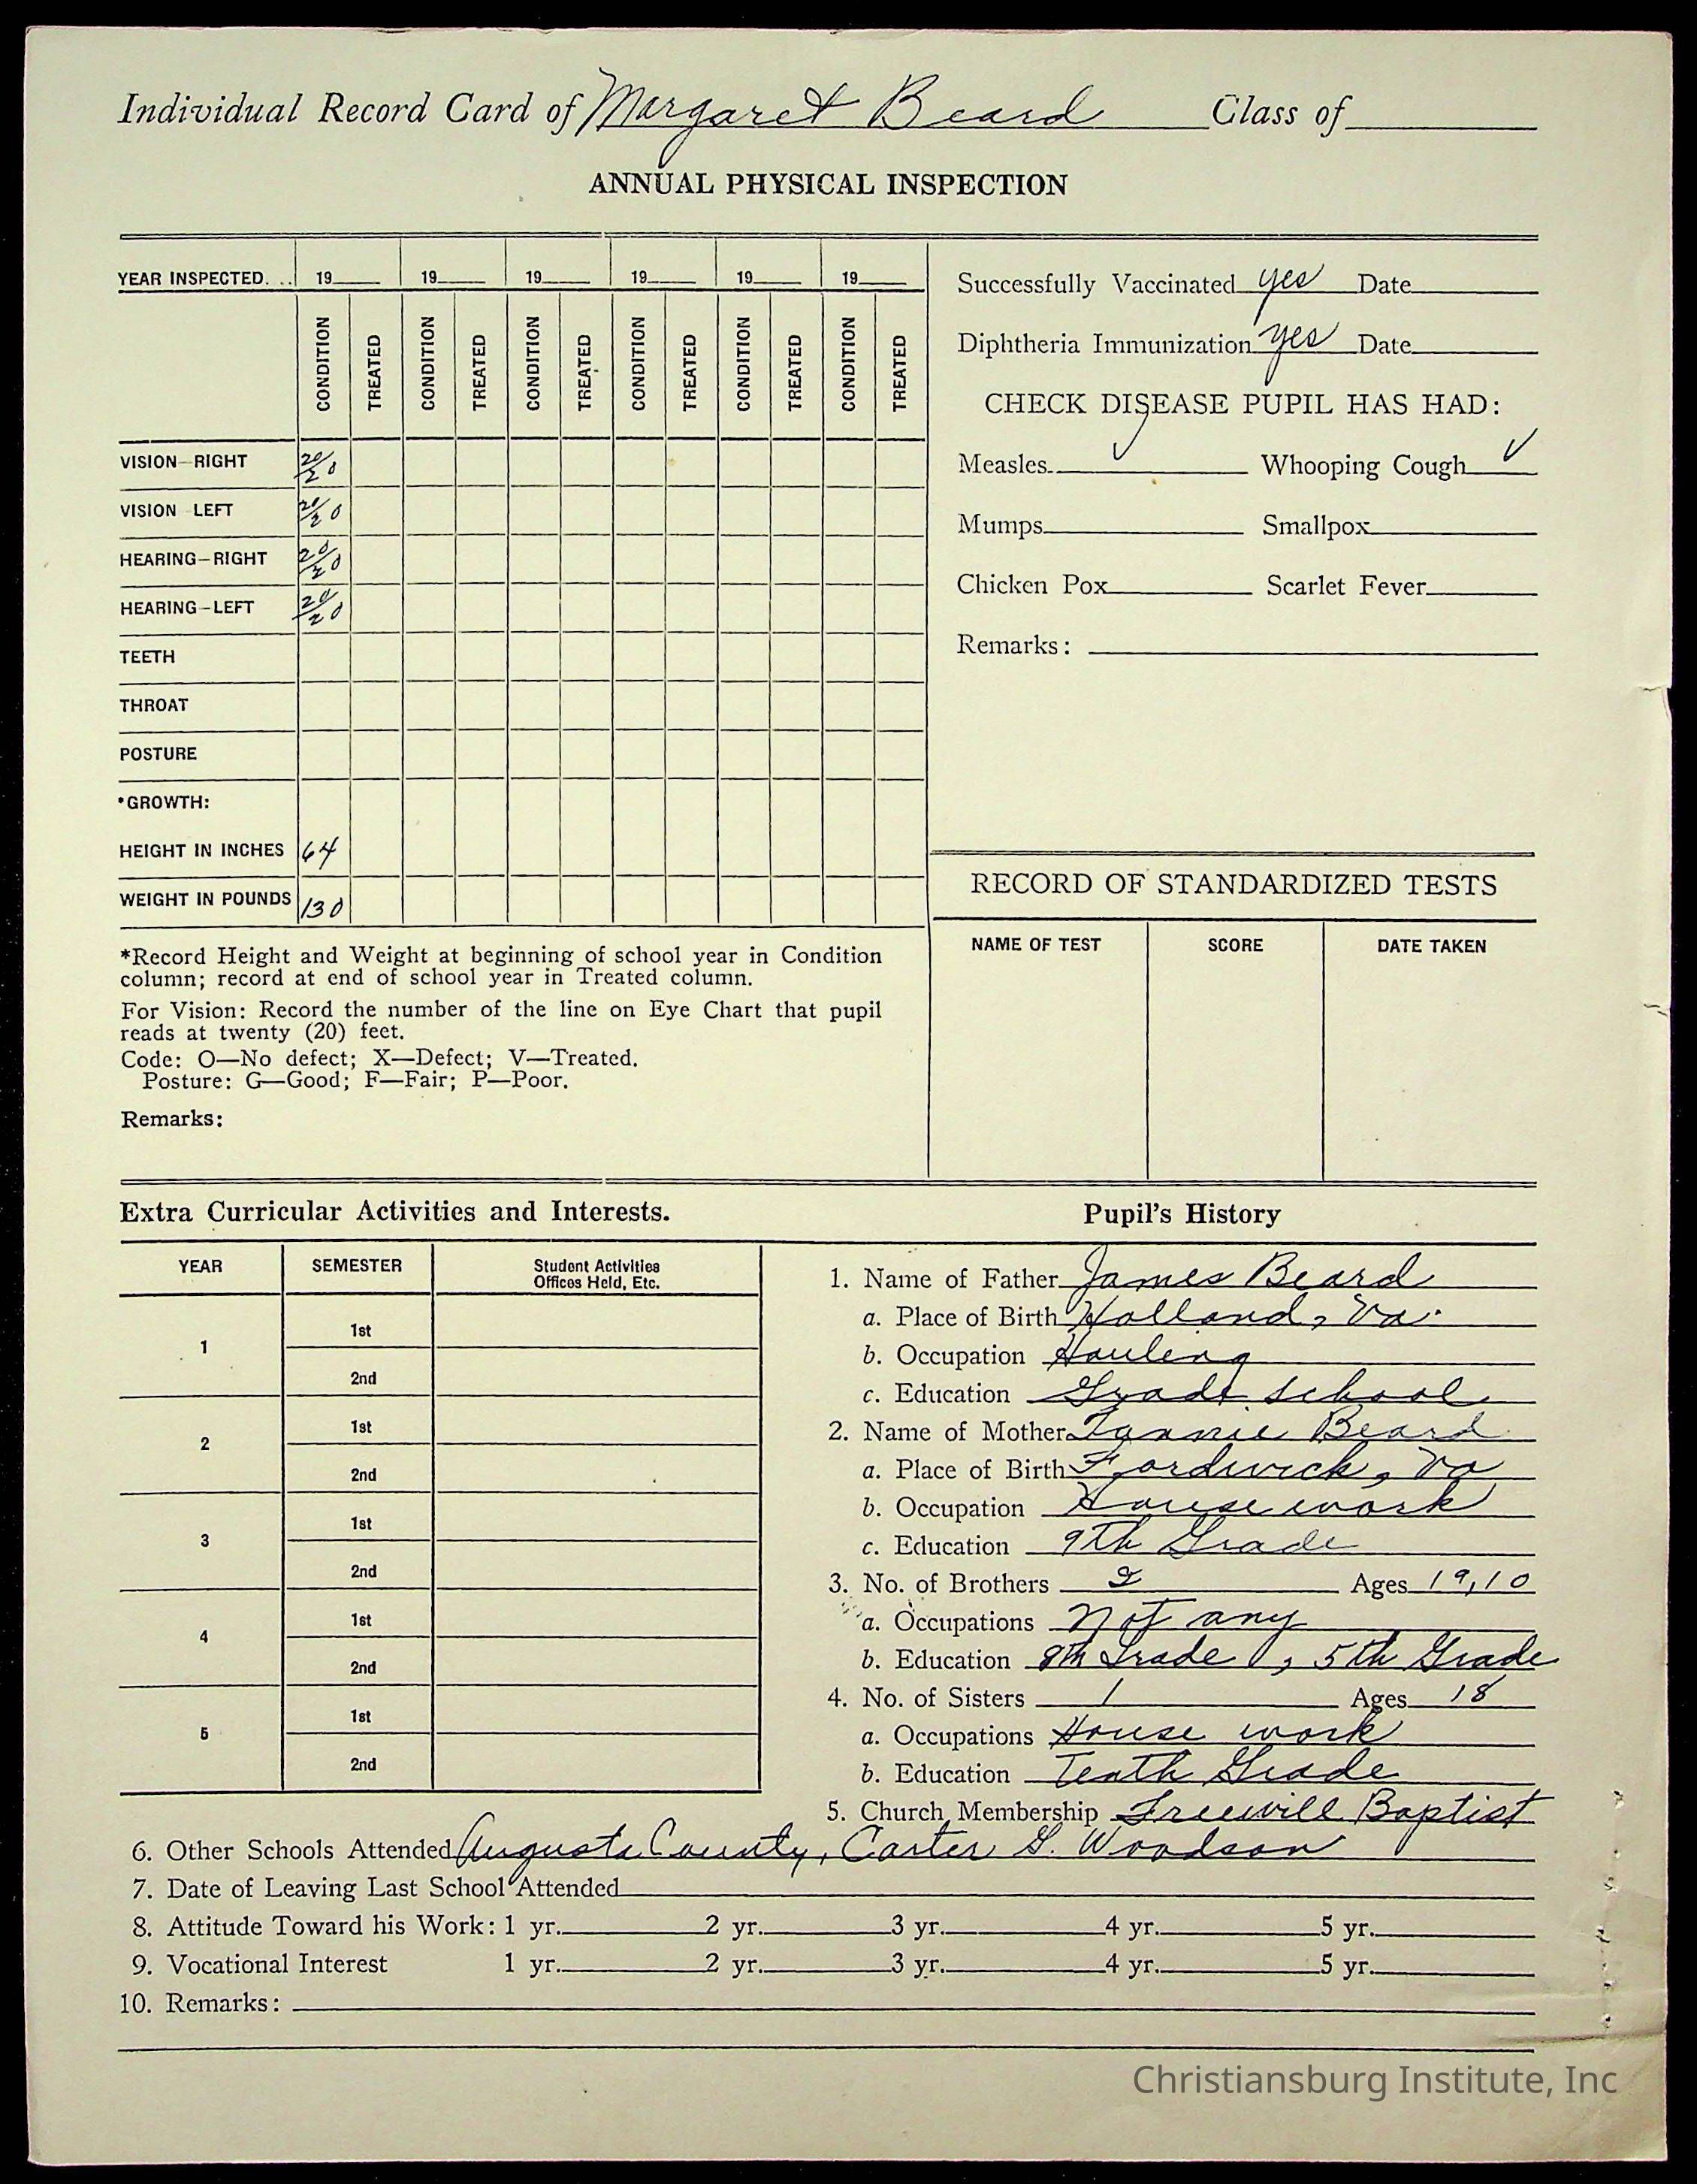 Individual Record Card of Margaret Beard Class of
ANNUAL PHYSICAL INSPECTION
YEAR INSPECTED. . . 19 19 19 19 19 19
CONDITION TREATED CONDITION TREATED CONDITION TREATED CONDITION TREATED CONDITION TREATED CONDITION TREATED
VISION—RIGHT 20/20
VISION LEFT 20/20
HEARING—RIGHT 20/20
HEARING—LEFT 20/20
TEETH
THROAT
POSTURE
*GROWTH:
HEIGHT IN INCHES 64
WEIGHT IN POUNDS 130
*Record Height and Weight at beginning of school year in Condition
column; record at end of school year in Treated column.
For Vision: Record the number of the line on Eye Chart that pupil
reads at twenty (20) feet.
Code: O—No defect; X—Defect; V—Treated.
Posture: G—Good; F—Fair; P—Poor.
Remarks:
Successfully Vaccinated yes Date
Diphtheria Immunization yes Date
CHECK DISEASE PUPIL HAS HAD:
Measles ✓ Whooping Cough ✓
Mumps Smallpox
Chicken Pox Scarlet Fever
Remarks:
RECORD OF STANDARDIZED TESTS
NAME OF TEST SCORE DATE TAKEN
Extra Curricular Activities and Interests.
YEAR SEMESTER Student Activities
Offices Held, Etc.
1 1st
2nd
2 1st
2nd
3 1st
2nd
4 1st
2nd
5 1st
2nd
Pupil's History
1. Name of Father James Beard
a. Place of Birth Holland, Va.
b. Occupation Hauling
c. Education Grade school
2. Name of Mother Fannie Beard
a. Place of Birth Fordwick, Va
b. Occupation House work
c. Education 9th Grade
3. No. of Brothers 2 Ages 19, 10
a. Occupations Not any
b. Education 8th Grade, 5th Grade
4. No. of Sisters 1 Ages 18
a. Occupations House work
b. Education Tenth Grade
5. Church Membership Freewill Baptist
6. Other Schools Attended Augusta County, Carter G. Woodson
7. Date of Leaving Last School Attended
8. Attitude Toward his Work: 1 yr. 2 yr. 3 yr. 4 yr. 5 yr.
9. Vocational Interest 1 yr. 2 yr. 3 yr. 4 yr. 5 yr.
10. Remarks:
Christiansburg Institute, Inc